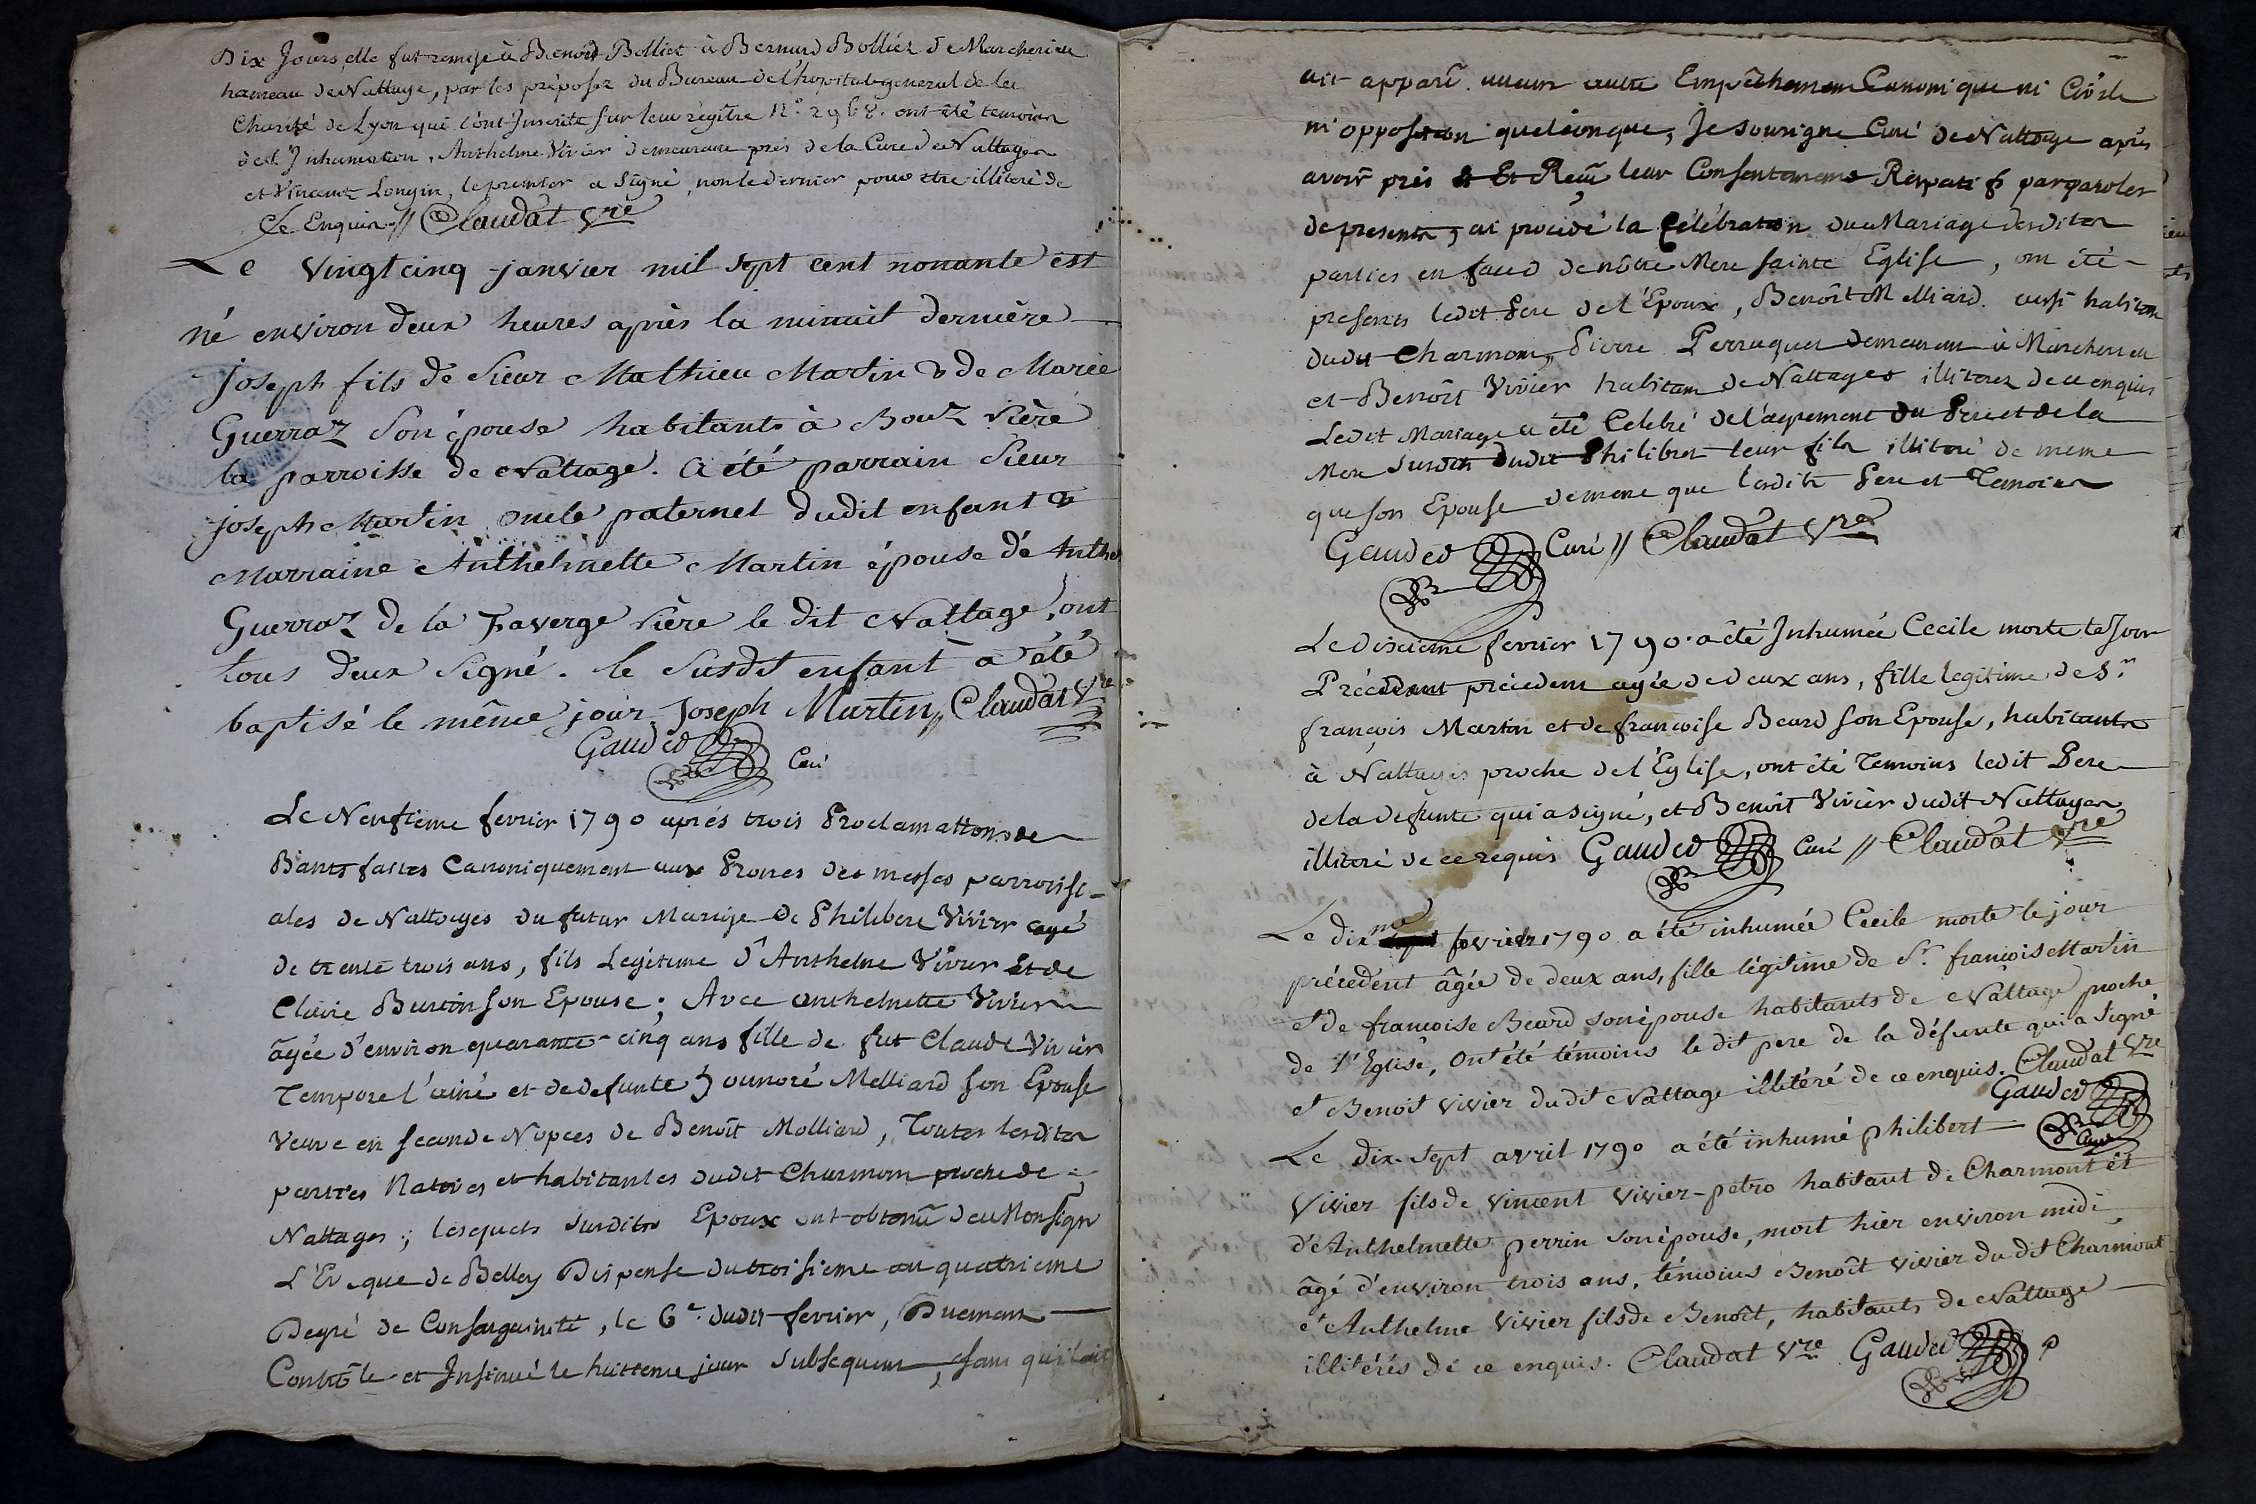 Dix Jours, elle fut remise à Benoit Bolliet à Bernard Bolliet de Marcherieu
hameau de Nattage, par les préposé du Bureau de l'hopital general de la
Charité de Lyon qui l'ont Inscrite sur leur régitre N.° 2968. ont été temoins
de l'Inhumation, Anthelme Vivier demeurant près de la Cure de Nattages
et Vincent Longin, le premier a signé, non le dernier pour être illiteré de
Ce Enquis // Claudat Vre
Le vingt cinq janvier mil sept cent nonante est
né environ deux heures après la minuit dernière
joseph fils de Sieur Mathieu Martin & de Marie
Guerraz Son épouse habitants à Bouz rière
la parroisse de Nattage. a été parrain Sieur
joseph Martin oncle paternel dudit enfant &
Marraine Anthelmette Martin épouse de Anthe
Guerraz de la Faverge rière le dit Nattage, ont
tous deux Signé. le Susdit enfant a été
baptisé le même jour. Joseph Martin // Claudat Vre
Gauded Curé
Le Neufieme fevrier 1790 aprés trois Proclamattons de
Bants faites Canoniquement aux Prones des messes parroissi-
ales de Nattages du futur Mariage de Philibert Vivier agé
de trente trois ans, fils Legitime d'Anthelme Vivier Et de
Claire Burtin son Epouse; Avec anthelmette Vivier
âgée d'environ quarante-cinq ans fille de fut Claude Vivier
Tempore l'ainé et de defunte honnoré Melliard son Epouse
Veuve en seconde Nopces de Benoît Molliard, Toutes lesdites
parties Natives et habitantes dudit Charmont proche de
Nattages; lesquels susdits Epoux ont obtenû de Monsigr
L'Eveque de Belley Dispense du troisieme au quatrieme
Degré de Consanguinité, le 6e. dudit fevrier, Duement
Contrôlé et Insinué le huitieme jour subsequent, sans qu'il ait
ait apparû aucun autre Empêchement Canonique ni Civile
ni opposition quelconque, Je sousigné Curé de Nattage après
avoir pris Et Reçû leur Consentement Réspatif par paroles
de presents, ai procédé la Célébration du Mariage desdites
parties en face de nôtre Mere sainte Eglise, ont été
presents ledit Pere de l'Epoux, Benoît Melliard aussi habitant
dudit Charmont, Pierre Perruquet demeurant à Marcherieu
et Benoît Vivier habitant de Nattages illiterez de ce enquis
Ledit Mariage a été Celebré de l'agrement du Pere et de la
Mere susdit dudit Philibert leur fils illiteré de meme
que son Epouse de meme que lesdits Pere et Temoins
Gauded Curé // Claudat Vre
Le dixieme fevrier 1790 a été Inhumée Cecile morte le Jour
Précédent précedent agée de deux ans, fille legitime de Sr.
françois Martin et de françoise Beard son Epouse, habitants
à Nattages proche de l'Église, ont été Temoins ledit Pere
de la defunte qui a signé, et Benoît Vivier dudit Nattages
illiteré de ce requis Gauded Curé // Claudat Vre
Le dixme fevrier 1790 a été inhumée Cecile morte le jour
précedent âgée de deux ans, fille légitime de Sr. francois Martin
et de francoise Beard son épouse habitants de Nattage proche
de l'Eglise, Ont été témoins le dit pere de la défunte qui a Signé
et Benoit vivier du dit Nattage illitéré de ce enquis. Claudat Vre
Gauded Curé
Le dix-sept avril 1790 a été inhumé philibert
Vivier fils de vincent vivier-petro habitant de Charmont et
d'Anthelmette perrin son épouse, mort hier environ midi
âgé d'environ trois ans, témoins Benoît vivier du dit Charmont
et Anthelme vivier fils de Benoît, habitants de Nattage
illitérés de ce enquis. Claudat Vre Gauded